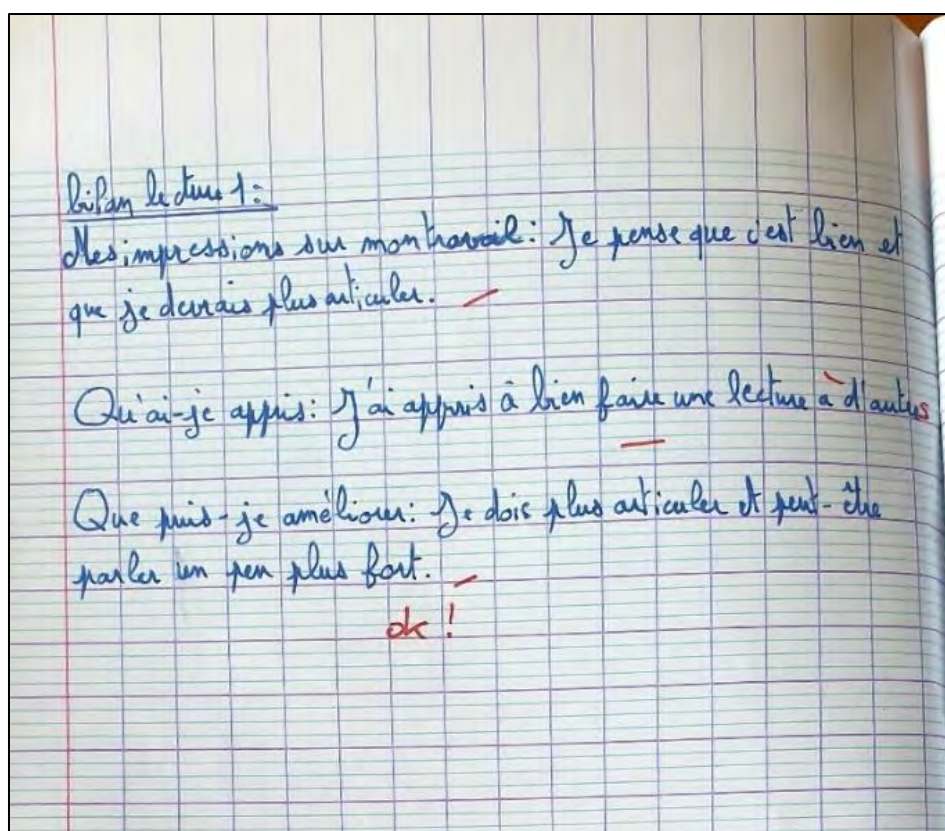 bilan lecture 1:
Mes impressions sur mon travail: Je pense que c'est bien et
que je devrais plus articuler.
Qu'ai-je appris: J'ai appris à bien faire une lecture à d'autres
Que puis-je améliorer: Je dois plus articuler et peut-être
parler un peu plus fort.
ok !